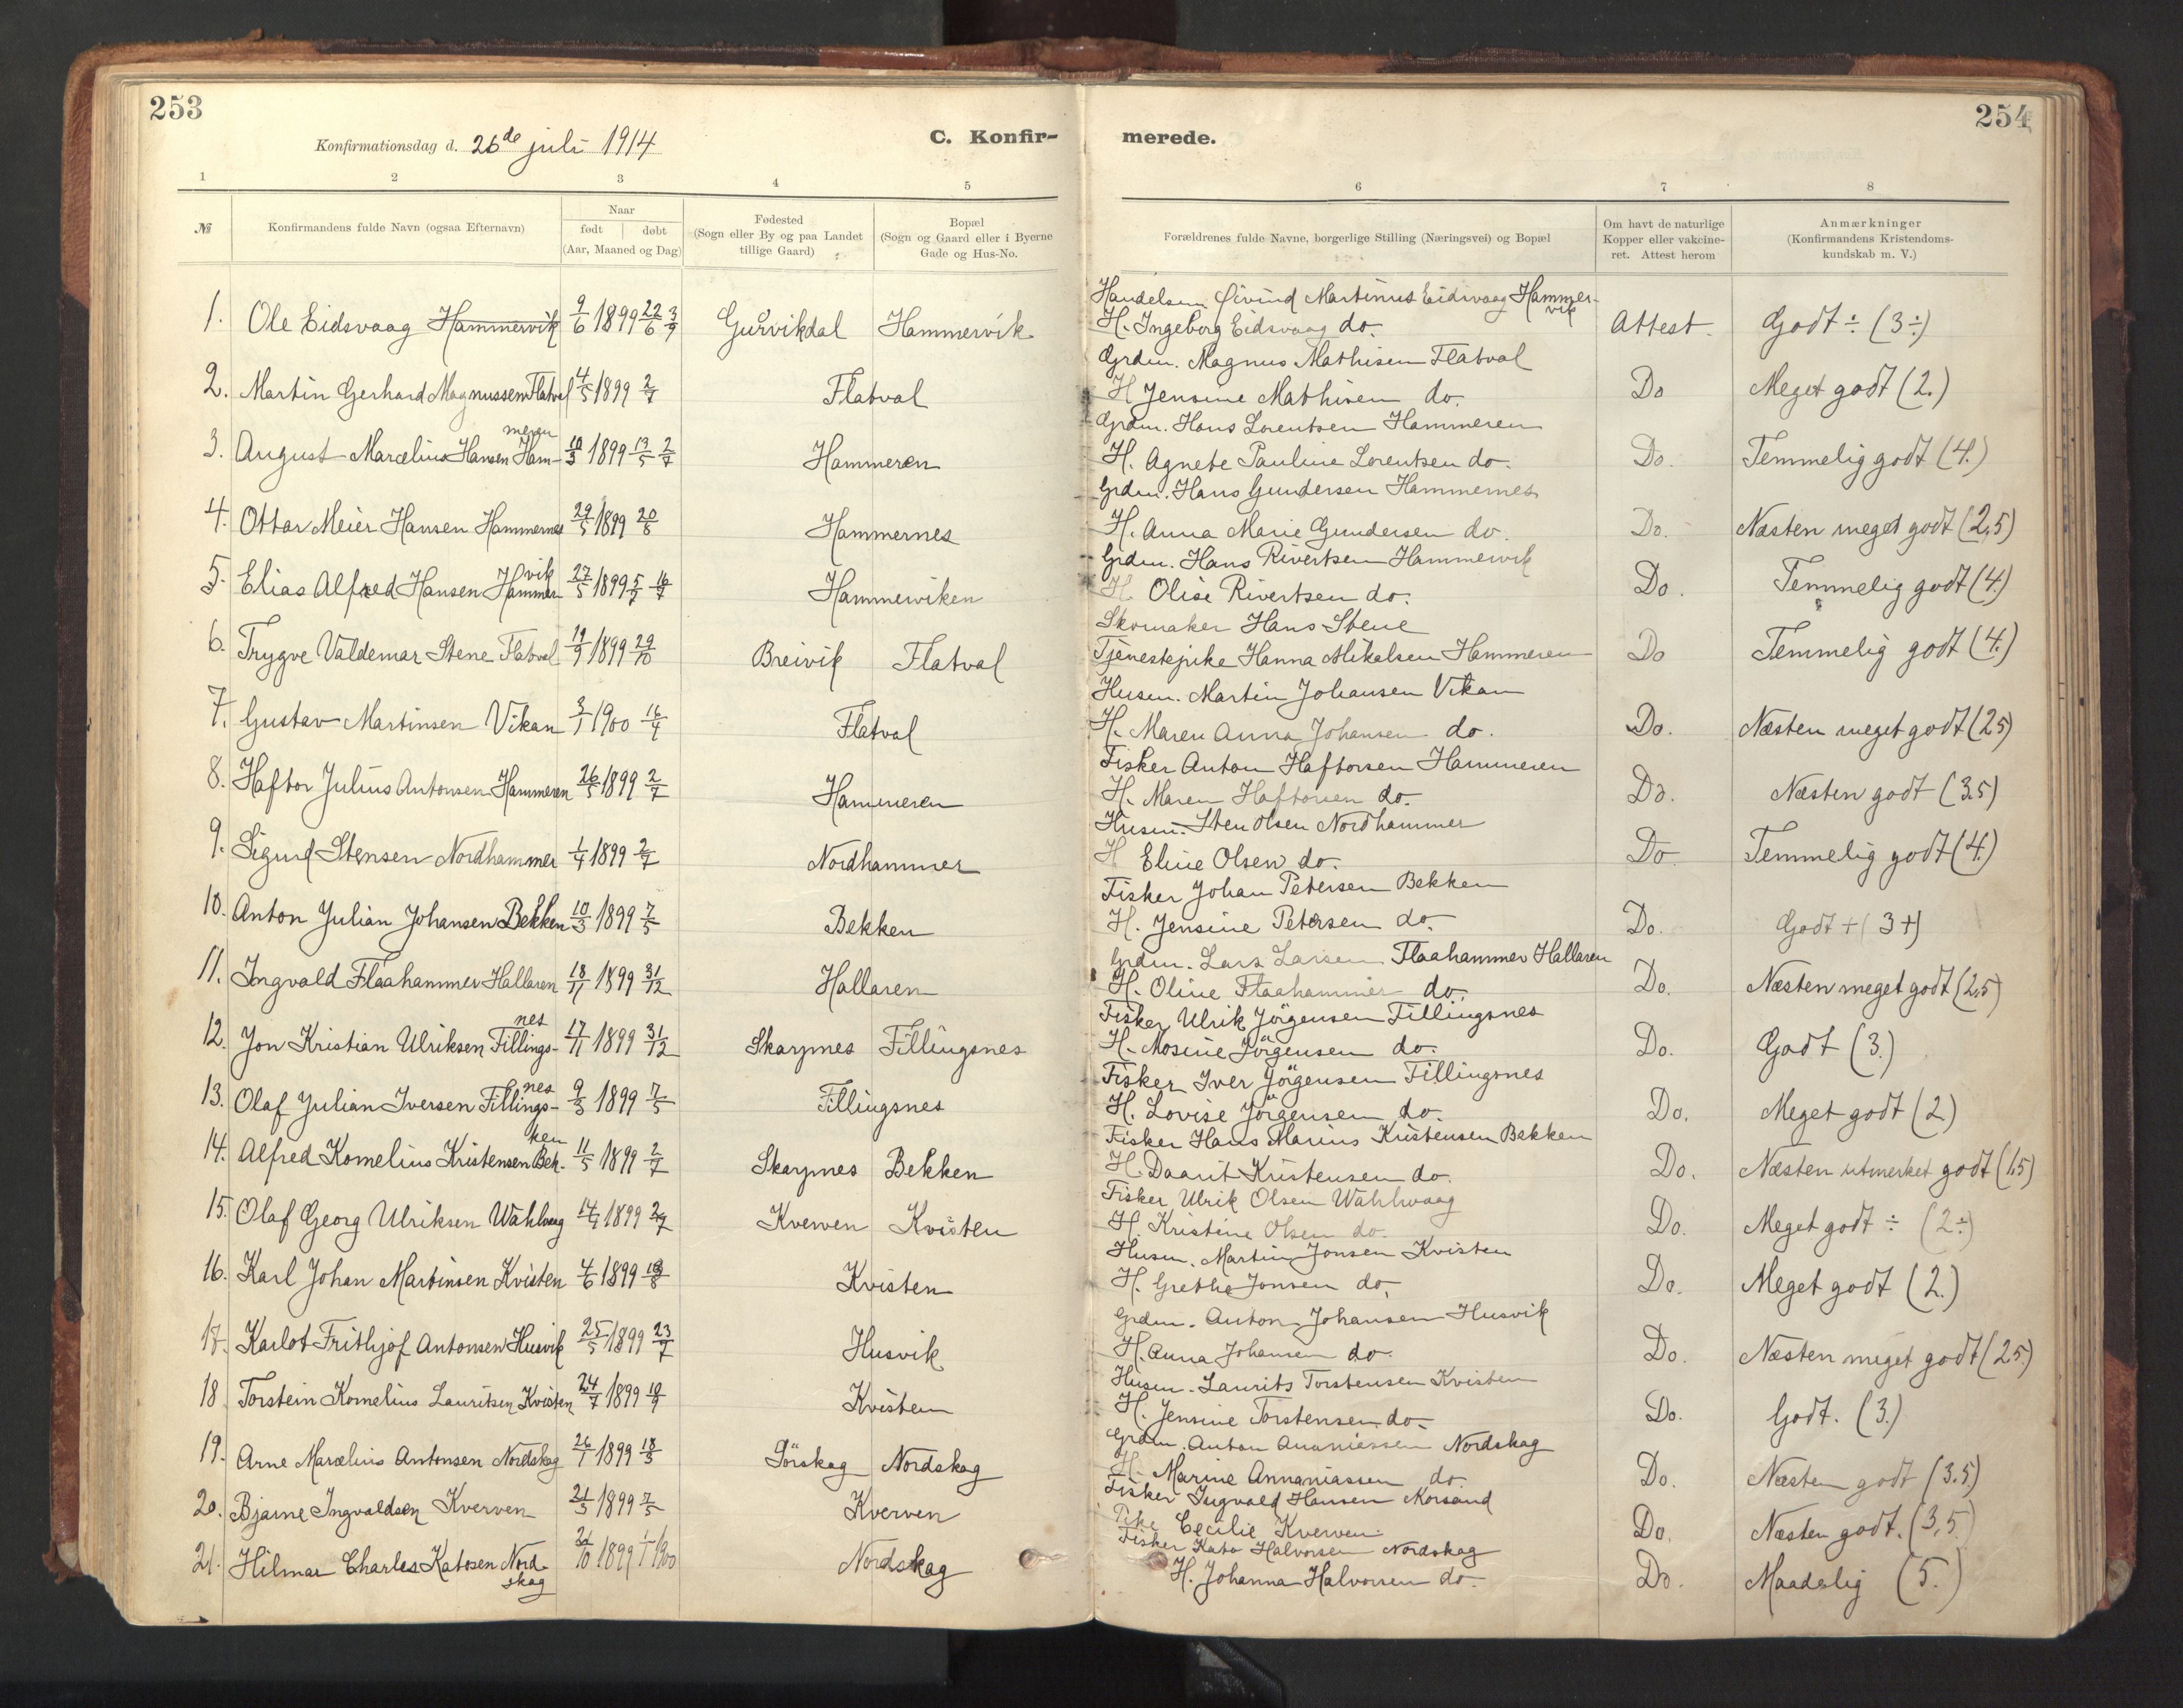 253
254
Konfirmationsdag d. 26de juli 1914
C. Konfir-
merede.
1 2 3 4 5 6 7 8
№ Konfirmandens fulde Navn (ogsaa Efternavn) Naar født døbt (Aar, Maaned og Dag) Fødested (Sogn eller By og paa Landet tillige Gaard) Bopæl (Sogn og Gaard eller i Byerne Gade og Hus-No. Forældrenes fulde Navne, borgerlige Stilling (Næringsvei) og Bopæl Om havt de naturlige Kopper eller vakcine-ret. Attest herom Anmærkninger (Konfirmandens Kristendoms-kundskab m. V.)
Handelsm Øivind Martinus Eidsvaag Hammer-vik
1. Ole Eidsvaag Hammervik 9/6 1899 22/6 3/9 Gurvikdal Hammervik H. Ingeborg Eidsvaag do. Attest. Godt ÷ (3÷)
Grdm. Magnus Mathisen Flatval
2. Martin Gerhard Magnussen Flatval 4/5 1899 2/7 Flatval H Jensine Mathisen do. Do Meget godt (2.)
Grdm. Hans Lorentsen Hammeren
3. August Marcelius Hansen Ham-meren 10/3 1899 13/5 2/7 Hammeren H. Agnete Pauline Lorentsen do. Do. Temmelig godt (4.)
Grdm. Hans Gundersen Hammernes
4. Ottar Meier Hansen Hammernes 29/5 1899 20/8 Hammernes H. Anna Marie Gundersen do. Do. Næsten meget godt (2,5)
Grdm. Hans Rivertsen Hammervik
5. Elias Alfred Hansen Hammervik 27/5 1899 5/7 16/7 Hammerviken H Olise Rivertsen do. Do. Temmelig godt (4.)
Skomaker Hans Stene
6. Trygve Valdemar Stene Flatval 19/9 1899 29/10 Breivik Flatval Tjenestepike Hanna Mikalsen Hammeren Do Temmelig godt (4.)
Husm. Martin Johansen Vikan
7. Gustav Martinsen Vikan 3/1 1900 16/4 Flatval H. Maren Anna Johansen do. Do. Næsten meget godt (2,5)
Fisker Anton Haftorsen Hammeren
8. Haftor Julius Antonsen Hammeren 26/5 1899 2/7 Hammeren H. Maren Haftorsen do. Do. Næsten godt (3.5)
Husm. Sten Olsen Nordhammer
9. Sigurd Stensen Nordhammer 1/4 1899 2/7 Nordhammer H Eline Olsen do. Do Temmelig godt (4.)
Fisker Johan Petersen Bekken
10. Anton Julian Johansen Bekken 10/3 1899 7/5 Bekken H. Jensine Petersen do. Do. Godt + (3+)
Grdm. Lars Larsen Flaahammer Hallaren
11. Ingvald Flaahammer Hallaren 18/11 1899 31/12 Hallaren H. Oline Flaahammer do. Do. Næsten meget godt (2,5)
Fisker Ulrik Jörgensen Fillingsnes
12. Jon Kristian Ulriksen Fillings-nes 17/11 1899 31/12 Skarpnes Fillingsnes H. Mosine Jörgensen do. Do. Godt (3.)
Fisker Iver Jörgensen Fillingsnes
13. Olaf Julian Iversen Fillings-nes 9/3 1899 7/5 Fillingsnes H. Lovise Jörgensen do. Do. Meget godt (2)
Fisker Hans Marius Kristensen Bekken
14. Alfred Kornelius Kristensen Bek-ken 11/5 1899 2/7 Skarpnes Bekken H. Daarit Kristensen do. Do. Næsten utmerket godt (1,5)
Fisker Ulrik Olsen Wahlvaag
15. Olaf Georg Ulriksen Wahlvaag 14/4 1899 2/7 Kverven Kvisten H. Kristine Olsen do. Do. Meget godt ÷ (2÷)
Husm. Martin Jonsen Kvisten
16. Karl Johan Martinsen Kvisten 4/6 1899 Kvisten H. Grethe Jonsen do. Do. Meget godt (2.)
Grdm. Anton Johansen Husvik
17. Karlot Frithjof Antonsen Husvik 25/5 1899 23/7 Husvik H. Anna Johansen do. Do. Næsten meget godt (2.5.)
Husm. Laurits Torstensen Kvisten
18 Torstein Kornelius Lauritsen Kvisten 24/7 1899 10/9 Kvisten H. Jensine Torstensen do. Do. Godt. (3.)
Grdm. Anton Ananiassen Nordskag
19. Arne Marcelius Antonsen Nordskag 26/1 1899 18/3 Sörskag Nordskag H. Marine Annaniassen do. Do. Næsten godt (3.5)
Fisker Ingvald Hansen Korsand
20. Bjarne Ingvaldsen Kverven 21/3 1899 7/5 Kverven Pike Cecilie Kverven. Do. Næsten godt. (3,5.)
Fisker Kato Halvorsen Nordskag
21. Hilmar Charles Katosen Nord-skag 1899 1/1 1900 Nordskag H. Johanna Halvorsen do. Do. Maadelig (5.)